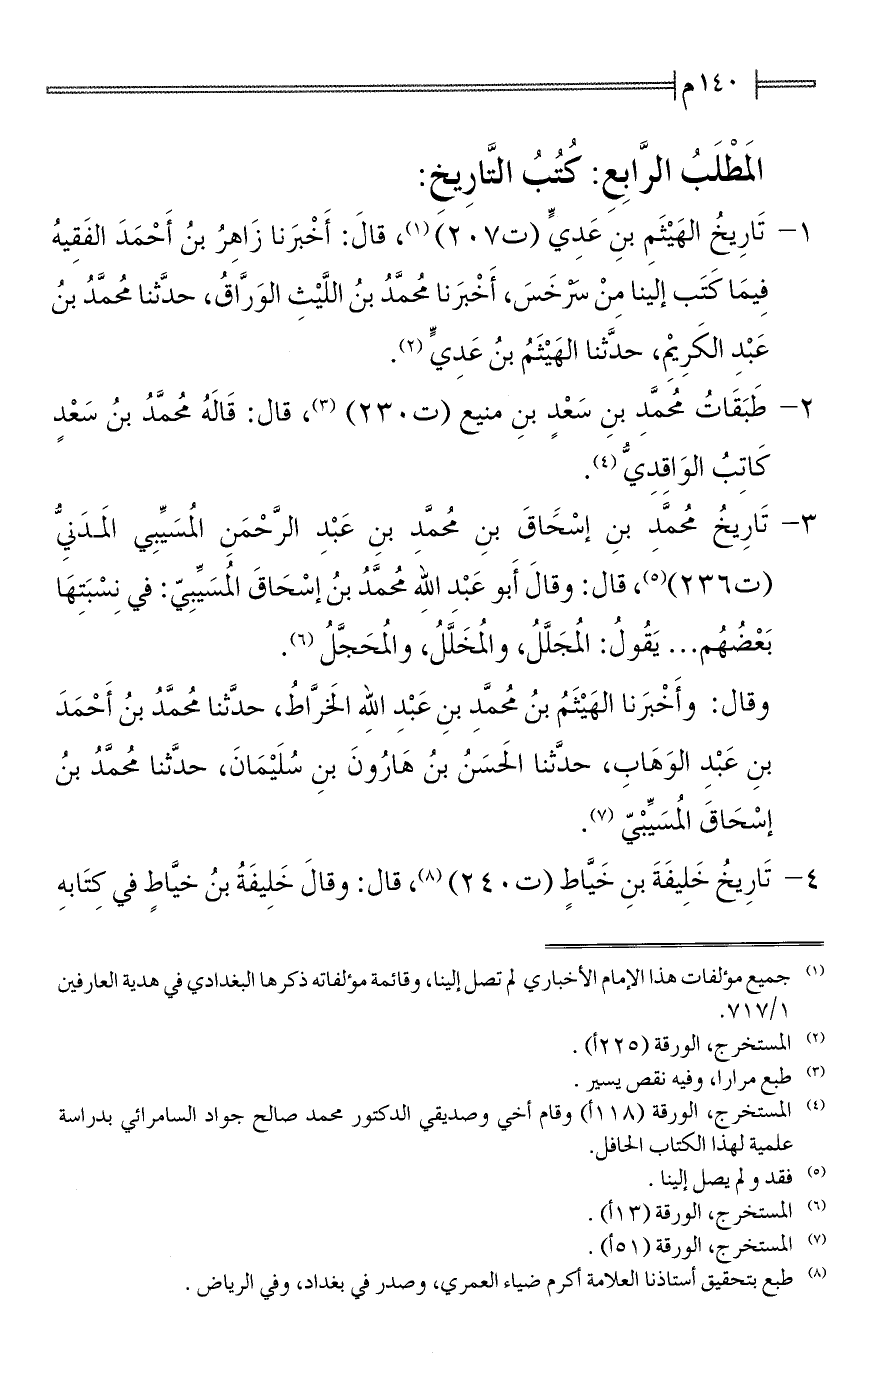 ١٤٠م
المَطْلَبُ الرَّابِعِ: كُتُبُ التَّارِيخِ:
١- تَارِيخُ الهَيْثَمِ بنِ عَدِيٍّ (ت٢٠٧)(١)، قالَ: أَخْبَرَنا زَاهِرُ بنُ أَحْمَدَ الفَقِيهُ
فِيمَا كَتَب إلينا مِنْ سَرْخَسَ، أَخْبَرَنا مُحمَّدُ بنُ اللَّيْثِ الوَرَّاقُ، حدَّثنا مُحمَّدُ بنُ
عَبْدِ الكَرِيْمِ، حدَّثنا الهَيْثَمُ بنُ عَدِيٍّ(٢).
٢- طَبَقَاتُ مُحمَّدِ بنِ سَعْدٍ بنِ منيع (ت٢٣٠) (٣)، قال: قَالَهُ مُحمَّدُ بنُ سَعْدٍ
كَاتِبُ الوَاقِدِيُّ(٤).
٣- تَارِيخُ مُحمَّدِ بن إسْحَاقَ بنِ مُحمَّدِ بنِ عَبْدِ الرَّحْمَنِ المُسَيِّبِي المَدَنيُّ
(ت٢٣٦)(٥)، قال: وقالَ أبو عَبْدِ الله مُحمَّدُ بنُ إسْحَاقَ المُسَيِّبيّ: في نِسْبَتِهَا
بَعْضُهُم... يَقُولُ: المُجَلَّلُ، والمُخَلَّلُ، والمُحَجلَّلُ(٦).
وقال: وأَخْبَرَنا الهَيْثَمُ بنُ مُحمَّدِ بنِ عَبْدِ الله الخَرَّاطُ، حدَّثنا مُحمَّدُ بنُ أَحْمَدَ
بنِ عَبْدِ الوَهَابِ، حدَّثنا الحَسَنُ بنُ هَارُونَ بنِ سُلَيْمَانَ، حدَّثنا مُحمَّدُ بنُ
إسْحَاقَ المُسَيِّبْيّ(٧).
٤- تَارِيخُ خَلِيفَةَ بنِ خَيَّاطٍ (ت٢٤٠)(٨)، قال: وقالَ خَلِيفَةُ بنُ خيَّاطٍ في كِتَابهِ
(١) جميع مؤلفات هذا الإمام الأخباري لم تصل إلينا، وقائمة مؤلفاته ذكرها البغدادي في هدية العارفين
٧١٧/١.
(٢) المستخرج، الورقة (٢٢٥أ) .
(٣) طبع مرارا، وفيه نقص يسير .
(٤) المستخرج، الورقة (١١٨أ) وقام أخي وصديقي الدكتور محمد صالح جواد السامرائي بدراسة
علمية لهذا الكتاب الحافل.
(٥) فقد ولم يصل إلينا .
(٦) المستخرج، الورقة (١٣أ) .
(٧) المستخرج، الورقة (٥١أ) .
(٨) طبع بتحقيق أستاذنا العلامة أكرم ضياء العمري، وصدر في بغداد، وفي الرياض .